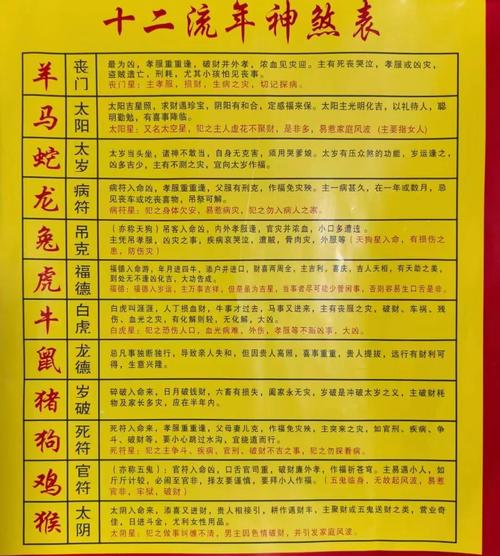 十二流年神煞表
羊
丧门
最为凶，孝服重重逢，破财并外孝，浓血见灾迎。主有死丧哭泣，孝服或凶灾，
盗贼遗亡，刑耗，尤其小孩怕见丧事。
丧门星：主孝服，损财，生病之灾，切记探病。
马
太阳
太阳吉星照，求财遇珍宝，阴阳有和合，定感福来保。太阳主光明化吉，以礼待人，聪
明勤勉，有喜事降临。
太阳星：又名太空星，犯之主人虚花不聚财，是非多，易惹家庭风波（主要指女人）
蛇
太岁
太岁当头坐，诸神不敢当，自身无克害，须用哭爹娘。太岁有压众煞的功能，岁运逢之，
凶多吉少，有不测之灾，宜向太岁作福。
龙
病符
病符入命来，孝服重重逢，父服有刑克，作福免灾殃。主一病甚久，在一年或数月，忌
见丧车或吃丧喜物，吊祭可解。
病符星：犯之身体欠安，易惹病灾，犯之勿入病人之家。
兔
吊克
（亦称天狗）吊客入命凶，内外孝服逢，官灾并浓血，小口多遭迍。
主凭吊孝服，凶灾之事，疾病哀哭泣，遭贼，骨肉灾殃，外服等。（天狗星入命，有损伤之
患，防伤灾）
虎
福德
福德入命游，年月进四牛，添户并进口，财喜两周全，主吉利，喜庆，吉人天相，有天助之美，
到处无不逢凶化吉，大功告成。
福德星：福德入岁运，主万事吉祥，但是最为吉星，当事者尽可能少管闲事，否则容易生口舌是非。
牛
白虎
白虎叫涯涯，人丁损血财，牛事才过去，马事又进来，主有丧服之灾，破财、车祸、残
伤、血光之灾，有化解则轻，无化解，大凶。
白虎星：犯之恐伤人口，血光病难，外伤，孝服等不脂凶事，大凶。
鼠
龙德
总凡事独断独行，导致亲人失和，但因贵人高照，喜事重重，贵人提拔，远行有财利可
得，生意兴隆。
猪
岁破
碎破入命来，日月破钱财，六畜有损失，阖家永无灾，岁破是冲破太岁之义，主破财耗
物及家长多灾，应在半年内。
狗
死符
死符入命来，孝服重重逢，父母妻儿克，作福免灾殃，主突来之灾，如官刑、疾病、争
斗、破财等，要小心跳过水沟，宜绕道而行。
死符星：犯之主争斗、疾病、官刑、破财不吉之事，犯之勿探看病。
鸡
官符
（亦称五鬼）：官符入命凶，口舌官司重，破财廉外孝，作福祈苍穹。主易遇小人，如
斤斤计较，必闹至官非，择友要谨慎，要拜小人作福。（五鬼临身，无故起风波，易惹
官非，牢狱，破财）
猴
太阴
太阴入命来，添喜又进财，贵人相接引，耕作遇财丰，主聚财或五鬼送财之类，营业奇
佳，日进斗金，尤利女性用品。
太阴星：犯之做事纠缠不清，男主因色情破财，并引发家庭风波。